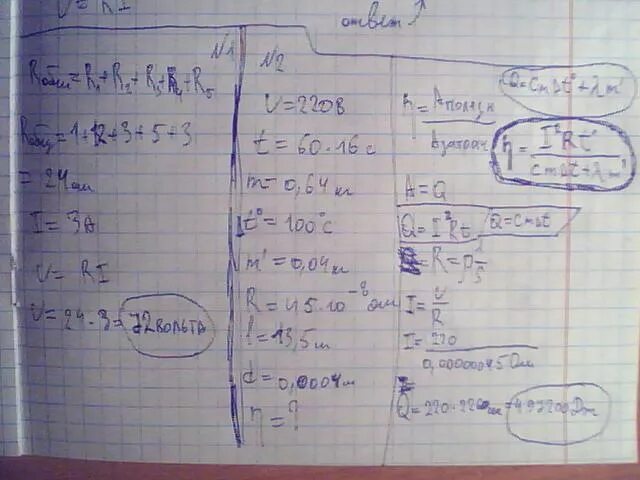 U = RI
ответ
N1
Rобщ = R₁ + R₂ + R₃ + R₄ + R₅
Rобщ = 1+12+3+5+3
= 24 ом
I = 3А
U = RI
U = 24 · 3 = 72 вольта
N2
U = 220 В
t = 60 · 16 с
m = 0,64 кг
t° = 100°с
m' = 0,04 кг
R = 45 · 10⁻⁸ ом
l = 13,5 м
d = 0,0004 м
η = ?
Q = cmΔt° + λm'
η = Aполезн / Aзатрач
η = I²Rt / cmΔt + λm'
A = Q
Q = I²Rt
Q = cmΔt
R = ρ l/S
I = U/R
I = 220 / 0,00000045 Ом